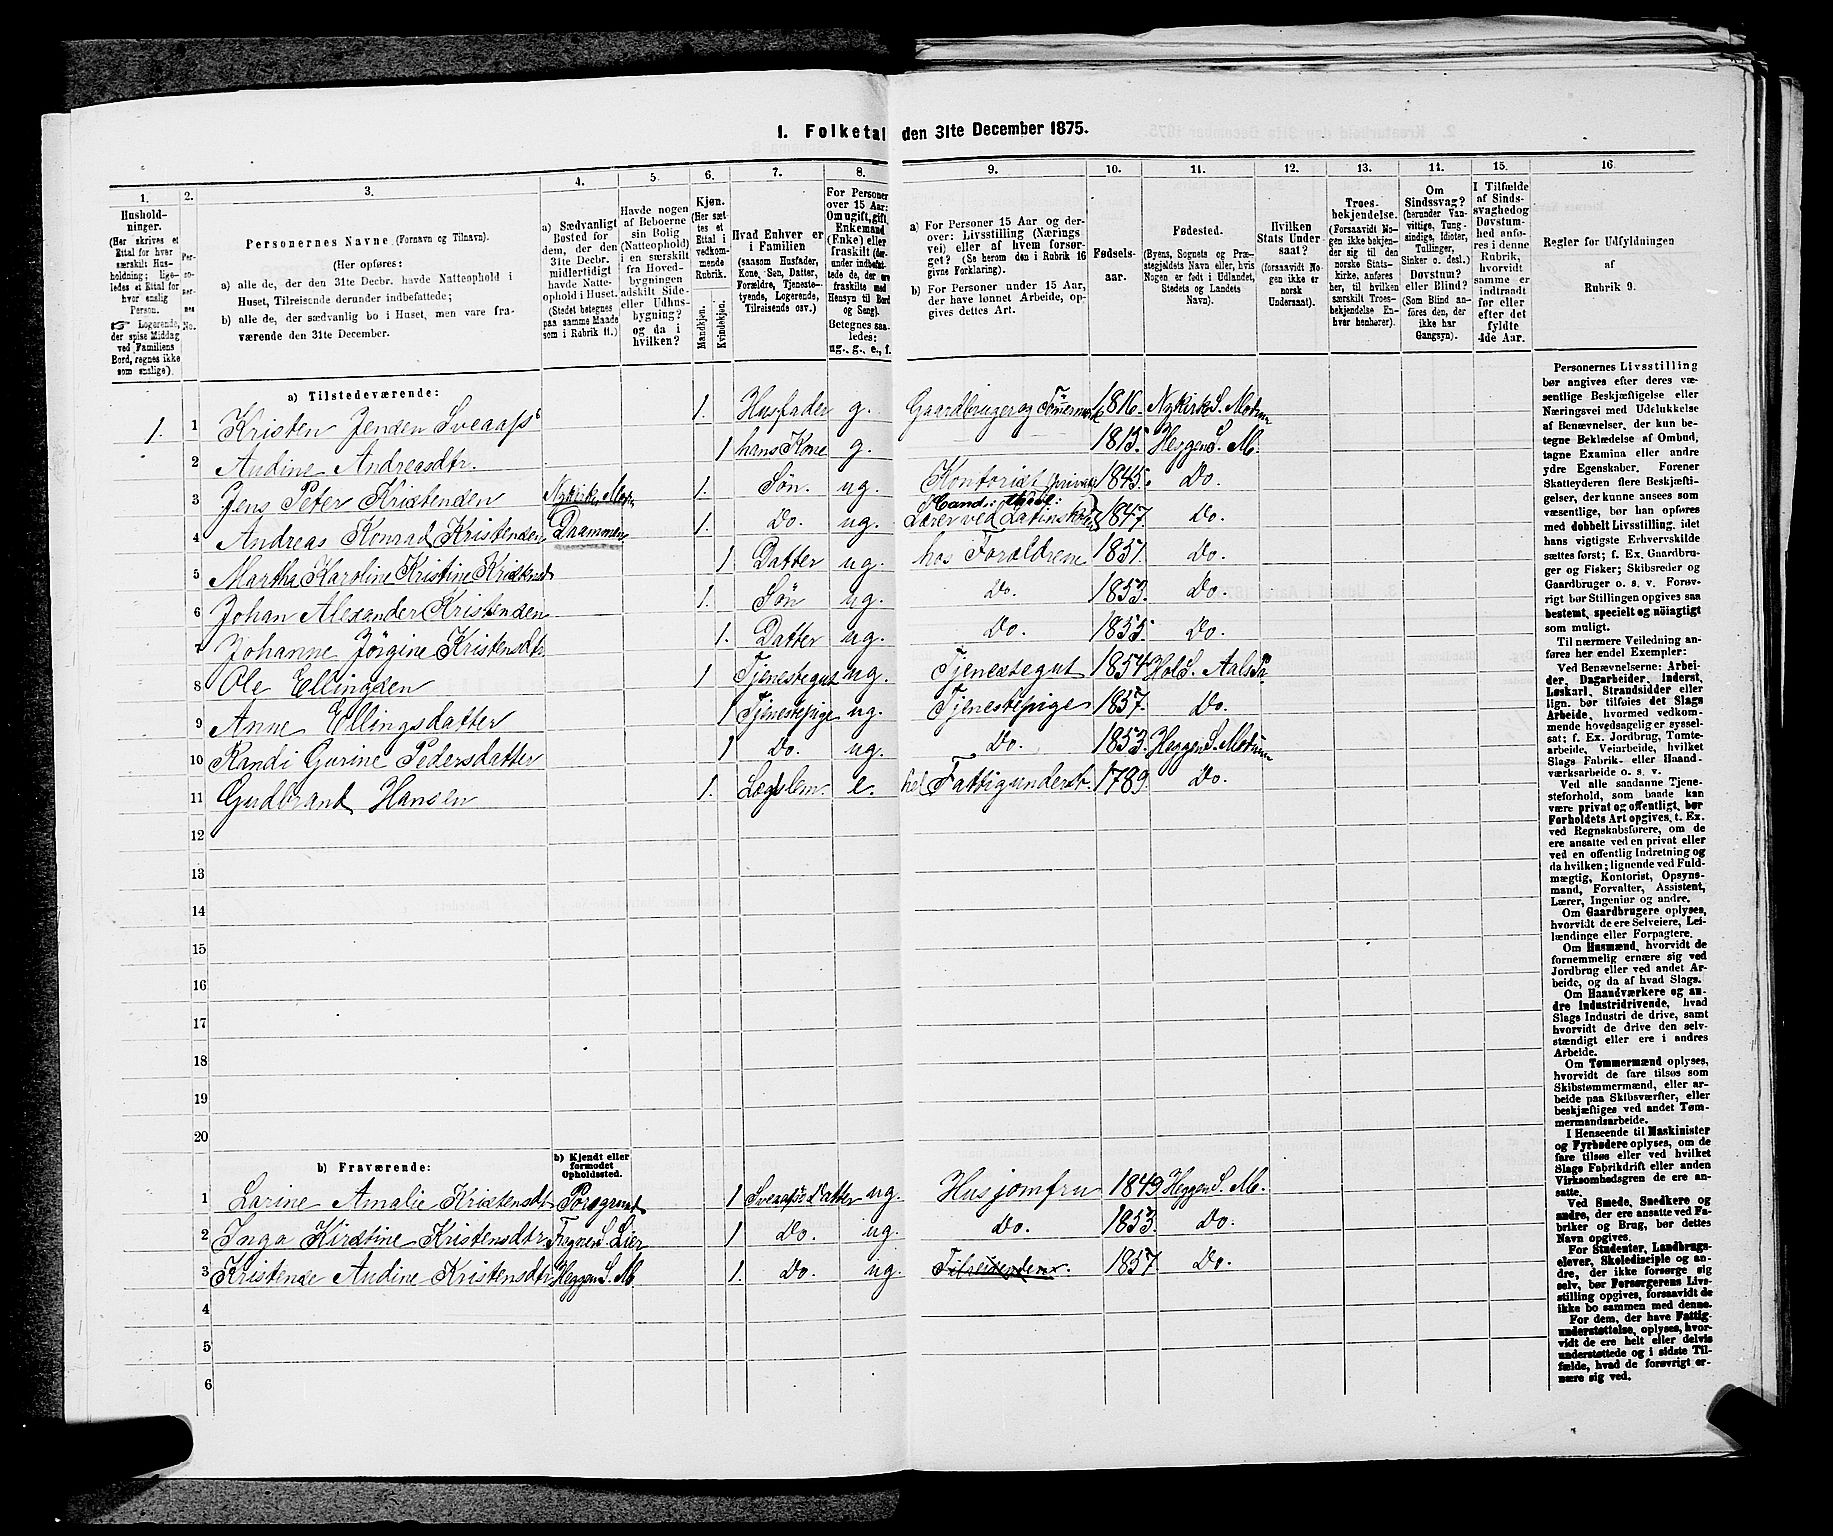 1. Folketal den 31te December 1875.
1.
Hushold-
ninger.
(Her skrives et
Ettal for hver
særskilt Hus-
holdning; lige-
ledes et Ettal for
hver enslig
Person.
Logerende,
der spise Middag
ved Familiens
Bord, regnes ikke
som enslige).
2.
Per-
so-
ner-
nes
No.
3.
Personernes Navne (Fornavn og Tilnavn).
(Her opføres:
a) alle de, der den 31te Decbr. havde Natteophold i
Huset, Tilreisende derunder indbefattede;
b) alle de, der sædvanlig bo i Huset, men vare fra-
værende den 31te December.
4.
a) Sædvanligt
Bosted for
dem, der den
31te Decbr.
midlertidigt
havde Natte-
ophold i Huset.
(Stedet betegnes
paa samme Maade
som i Rubrik 11.)
5.
Havde nogen
af Beboerne
sin Bolig
(Natteophold)
i en særskilt
fra Hoved-
bygningen
adskilt Side-
eller Udhus-
bygning?
og da i
hvilken?
6.
Kjøn.
(Her sæt-
tes et
Ettal i
vedkom-
mende
Rubrik.
Mandkjøn.
Kvindekjøn.
7.
Hvad Enhver er
i Familien
(saasom Husfader,
Kone, Søn, Datter,
Forældre, Tjeneste-
tyende, Logerende,
Tilreisende osv.)
8.
For Personer
over 15 Aar:
Om ugift, gift,
Enkemand
(Enke) eller
fraskilt (der-
under indbefat-
tede de, der ere
fraskilte med
Hensyn til Bord
og Seng).
Betegnes saa-
ledes:
ug., g., e., f.
9.
a) For Personer 15 Aar og der-
over: Livsstilling (Nærings-
vei) eller af hvem forsør-
get? (Se herom den i Rubrik 16
givne Forklaring).
b) For Personer under 15 Aar,
der have lønnet Arbeide, op-
gives dettes Art.
10.
Fødsels-
aar.
11.
Fødested.
(Byens, Sognets og Præ-
stegjeldets Navn eller, hvis
Nogen er født i Udlandet,
Stedets og Landets
Navn).
12.
Hvilken
Stats Under-
saat?
(forsaavidt No-
gen ikke er
norsk
Undersaat).
13.
Troes-
bekjendelse.
(Forsaavidt No-
gen ikke bekjen-
der sig til den
norske Stats-
kirke, anføres
her, til hvilken
særskilt Troes-
bekjendelse En-
hver henhører).
14.
Om
Sindssvag?
(herunder Van-
vittige, Tung-
sindige, Idioter,
Tullinger,
Sinker o. desl.)
Døvstum?
eller Blind?
(Som Blind an-
føres den, der
ikke har
Gangsyn).
15.
I Tilfælde
af Sinds-
svaghed og
Døvstum-
hed anfø-
res i denne
Rubrik,
hvorvidt
samme er
indtraadt
før eller
efter det
fyldte
4de Aar.
16.
Regler for Udfyldningen
af
Rubrik 9.
a) Tilstedeværende:
1. 1 Kristen Jensen Sveaas 1. Husfader g. Gaardbruger og 1816. Nykirke S. Modum
2 Audine Andreasdtr. 1 hans Kone g. 1815. Heggen S. M.
3 Jens Peter Kristensen Nykirke, Modum 1. Søn. ug. Kontorist privat 1845. Do.
4 Andreas Konrad Kristensen Drammen 1. Do. ug. Cand: theol: Lærer ved Latinskole 1847. Do.
5 Martha Karoline Kristine Kristensd 1 Datter ug. hos Forældrene 1851. Do.
6 Johan Alexander Kristensen 1. Søn ug. Do. 1853. Do.
7 Johanne Jørgine Kristensdtr 1. Datter ug. Do. 1855. Do.
8 Ole Ellingsen 1 Tjenestegut ug. Tjenestegut 1854 Hol S. Aals Pr
9 Anne Ellingsdatter 1 Tjenestepige ug. Tjenestepige 1857. Do.
10 Randi Gurine Pedersdatter 1 Do. ug. Do. 1853. Heggen S. Modum
11 Gudbrand Hansen 1. Lægslem. e. hel Fattigunderst. 1789. Do.
12
13
14
15
16
17
18
19
20
b) Fraværende:
b) Kjendt eller
formodet
Opholdssted.
1 Larine Amalie Kristensdt Porsgrund 1 Datter ug. Husjomfru 1849 Heggen S. M.
2 Inga Kirstine Kristensdtr. S. Lier 1 Do. ug. Do. 1853. Do.
3 Kristense Audine Kristensdtr Heggen S. M 1. Do. ug. 1857 Do.
4
5
6
Personernes Livsstilling
bør angives efter deres væ-
sentlige Beskjæftigelse eller
Næringsvei med Udelukkelse
af Benævnelser, der kun be-
tegne Beklædelse af Ombud,
tagne Examina eller andre
ydre Egenskaber. Forener
Skatteyderen flere Beskjæfti-
gelser, der kunne ansees som
væsentlige, bør han opføres
med dobbelt Livsstilling, idet
hans vigtigste Erhvervskilde
sættes først; f. Ex. Gaardbru-
ger og Fisker; Skibsreder og
Gaardbruger o. s. v. Forøv-
rigt bør Stillingen opgives saa
bestemt, specielt og nøiagtigt
som muligt.
Til nærmere Veiledning an-
føres her endel Exempler:
Ved Benævnelserne: Arbei-
der, Dagarbeider, Inderst,
Løskarl, Strandsidder eller
lign. bør tilføies det Slags
Arbeide, hvormed vedkom-
mende hovedsagelig er syssel-
sat; f. Ex. Jordbrug, Tomte-
arbeide, Veiarbeide, hvilket
Slags Fabrik- eller Haand-
værksarbeide o. s. v.
Ved alle saadanne Tjene-
steforhold, som baade kan
være privat og offentligt, bør
Forholdets Art opgives. t. Ex.
ved Regnskabsførere, om de
ere ansatte ved en privat eller
ved en offentlig Indretning og
da hvilken; lignende ved Fuld-
mægtig, Kontorist, Opsyns-
mand, Forvalter, Assistent,
Lærer, Ingeniør og andre.
Om Gaardbrugere oplyses,
hvorvidt de ere Selveiere, Lei-
lændinge eller Forpagtere.
Om Husmænd, hvorvidt de
fornemmelig ernære sig ved
Jordbrug eller ved andet Ar-
beide, og da af hvad Slags.
Om Haandværkere og an-
dre Industridrivende, hvad
Slags Industri de drive, samt
hvorvidt de drive den selv-
stændigt eller ere i andres
Arbeide.
Om Tømmermænd oplyses,
hvorvidt de fare tilsøs som
Skibstømmermænd, eller ar-
beide paa Skibsværfter, eller
beskjæftiges ved andet Tøm-
mermandsarbeide.
I Henseende til Maskinister
og Fyrbødere oplyses, om de
fare tilsøs eller ved hvilket
Slags Fabrikdrift eller anden
Virksomhedsgren de ere an-
satte.
Ved Smede, Snedkere og
andre, der ere ansatte ved Fa-
briker og Brug, bør dettes
Navn opgives.
For Studenter, Landbrugs-
elever, Skoledisciple og an-
dre, der ikke forsørge sig
selv, bør Forsørgerens Livs-
stilling opgives, forsaavidt de
ikke bo sammen med denne.
For dem, der have Fattig-
understøttelse, oplyses, hvor-
vidt de ere helt eller delvis
understøttede og i sidste Til-
fælde, hvad de forøvrigt er-
nære sig ved.